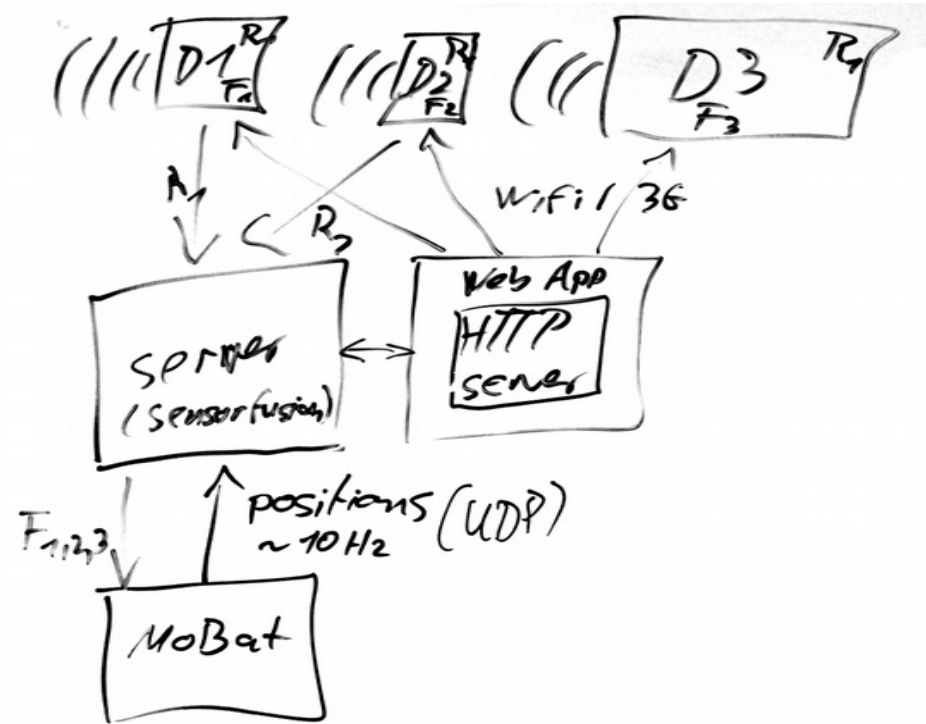 D1 R₁
F₁
D2 R₁
F₂
D3 R₁
F₃
R₁
R₂
Wifi / 3G
Web App
HTTP
server
server
(sensorfusion)
F₁,₂,₃
positions (UDP)
~ 10 Hz
MoBat